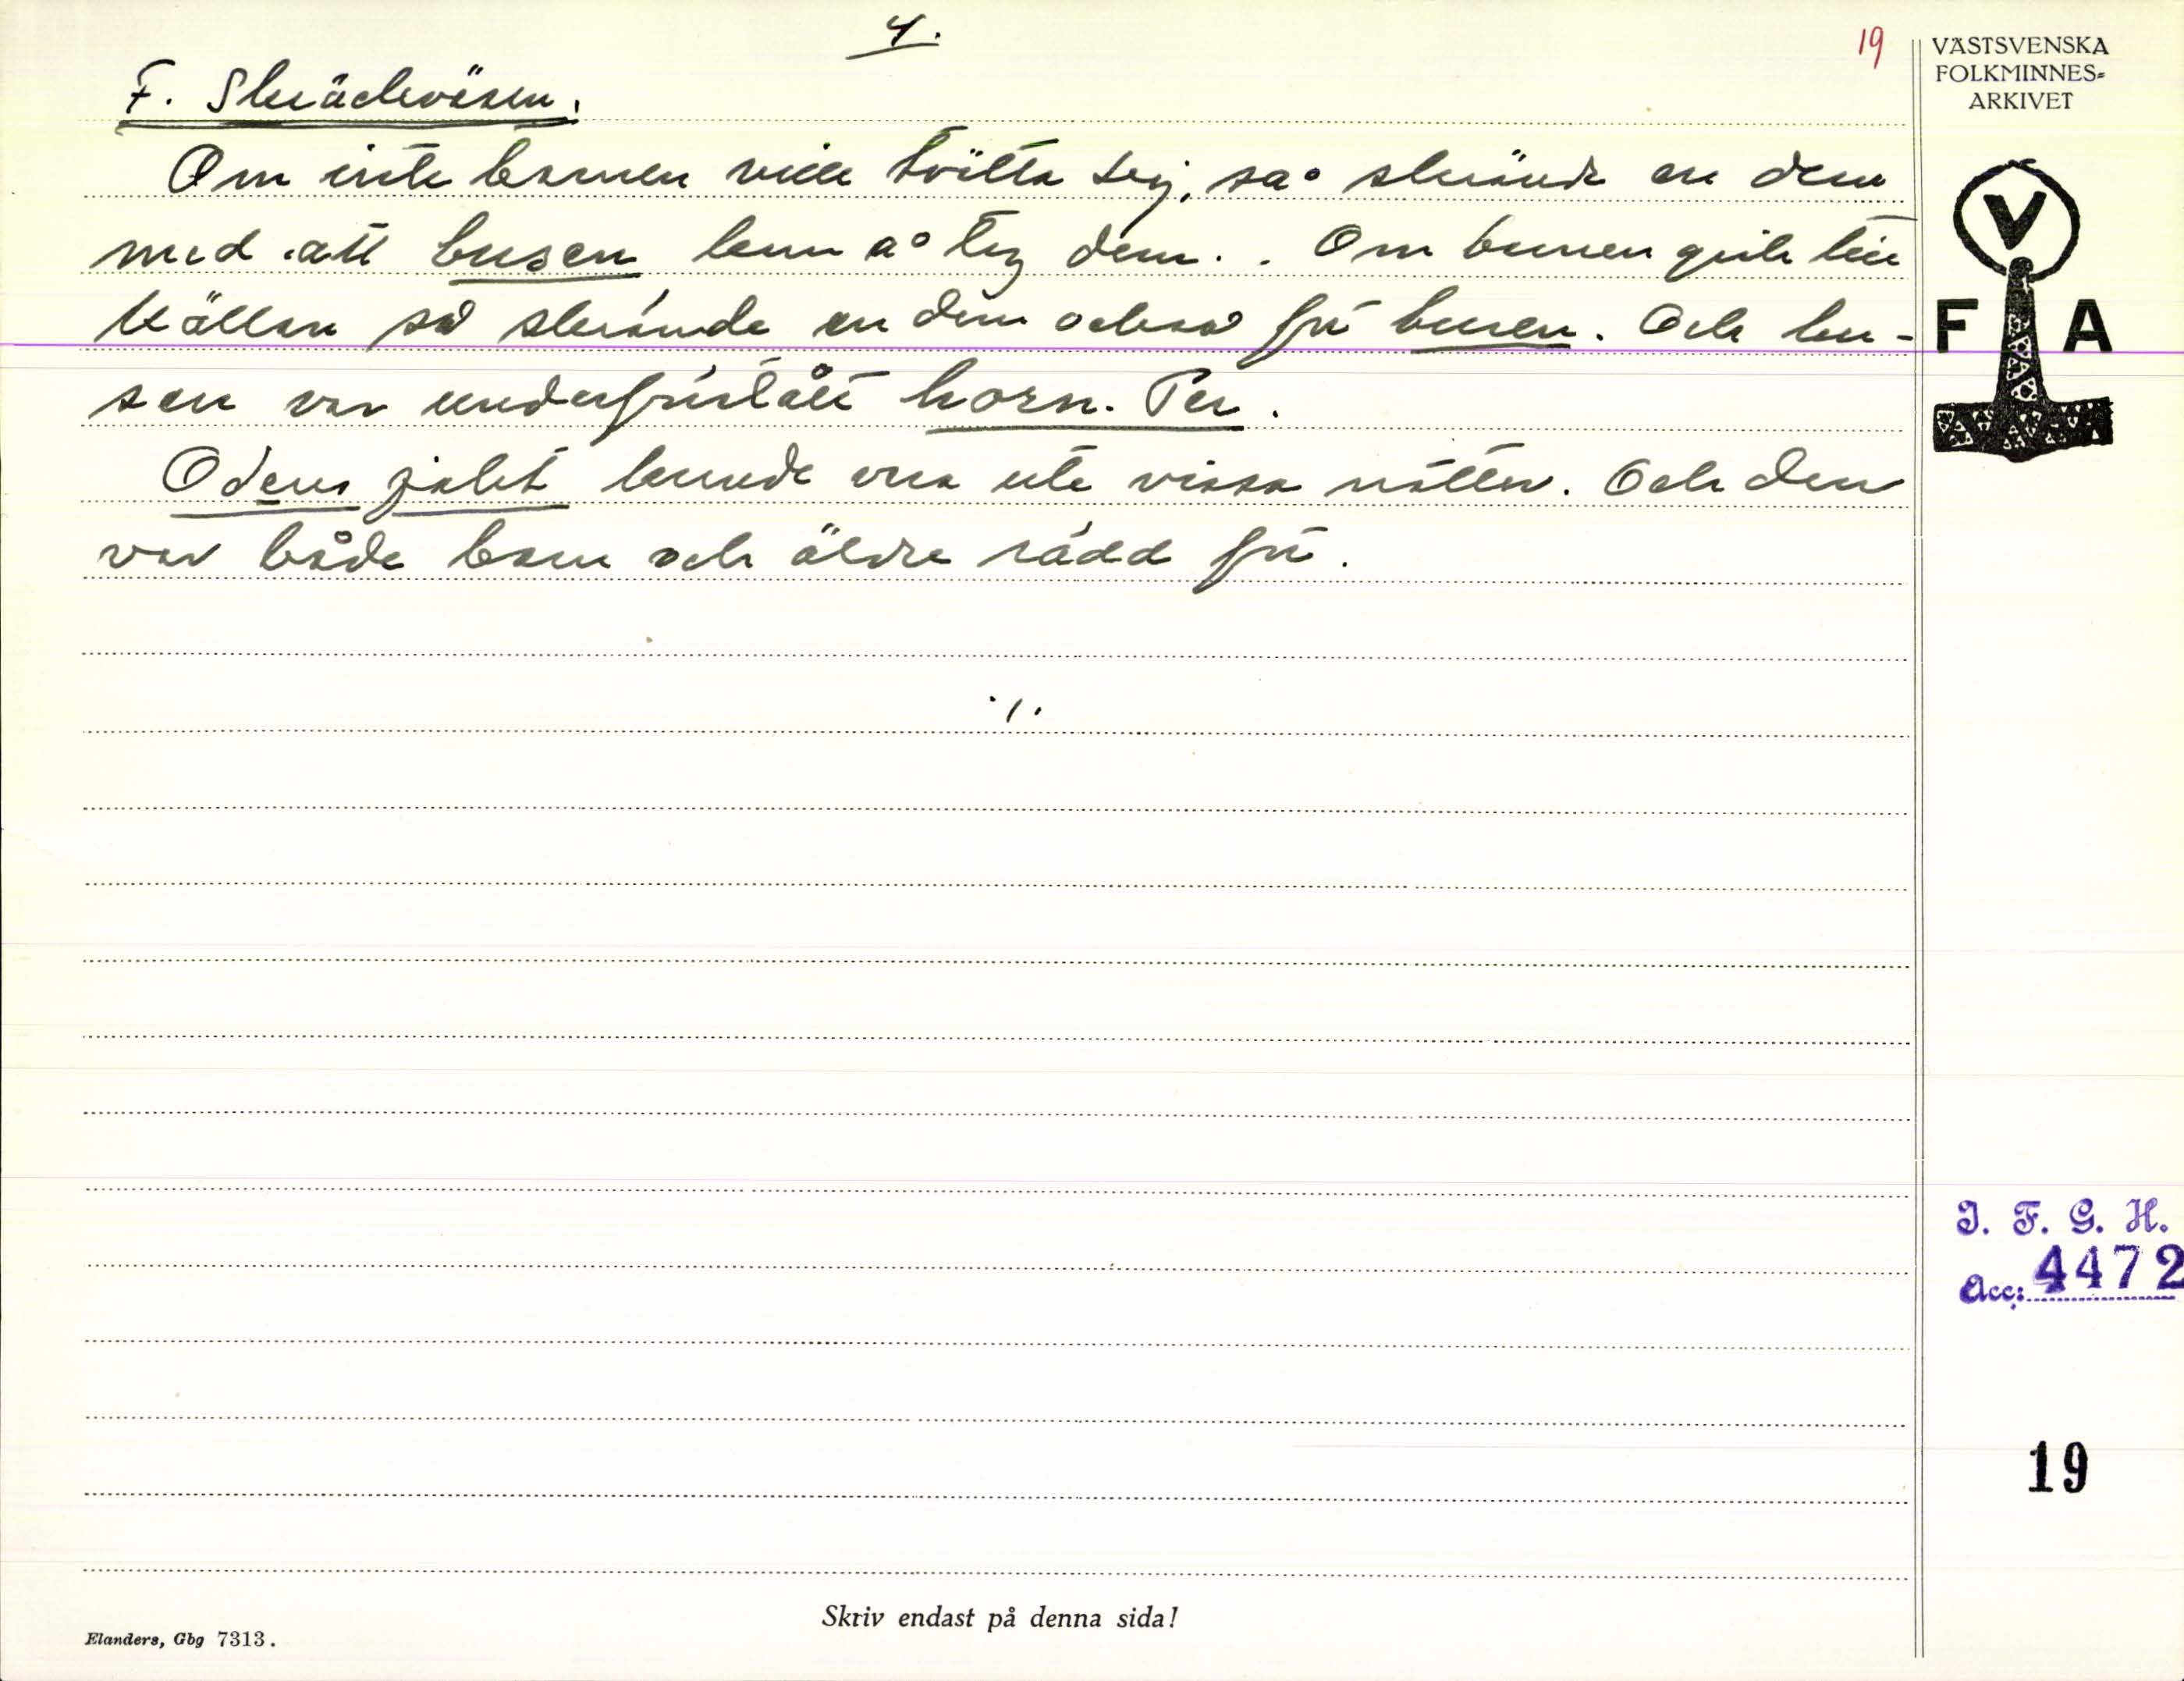 4.
19
VÄSTSVENSKA
FOLKMINNES=
ARKIVET
F. Skräckväsen.
Om inte barnen ville tvätta sej, så skrämde en dem
med att busen kom å tog dem. . Om barnen gick till
källan så skrämde en dem också för busen. Och bu-
sen var underförstått horn. Per.
Odens jakt kunde vara ute vissa nätter. Och den
var både barn och äldre rädd för.
V
F A
./.
I. F. G. H.
Acc: 4472
19
Skriv endast på denna sida!
Elanders, Gbg 7313.